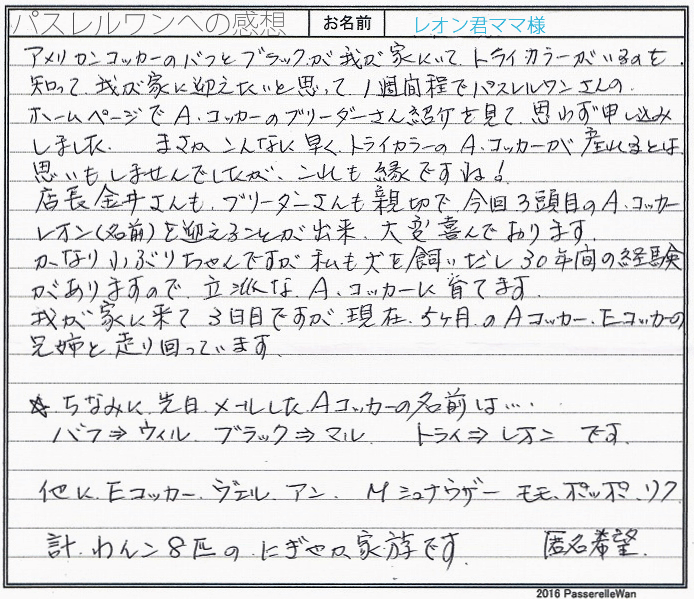 パスレルワンへの感想 お名前 レオン君ママ様
アメリカンコッカーのバフとブラックが我が家にいて、トライカラーがいるのを、
知って、我が家に迎えたいと思って、1週間程でパスレルワンさんの、
ホームページでA.コッカーのブリーダーさん紹介を見て、思わず申し込み
しました。 まさか、こんなに早く、トライカラーのA.コッカーが産れるとは、
思いもしませんでしたが、これも縁ですね!
店長金井さんも、ブリーダーさんも親切で、今回3頭目のA.コッカー
レオン(名前)を迎えることが出来、大変喜んでおります
かなり小ぶりちゃんですが、私も犬を飼いだし30年間の経験
がありますので、立派なA.コッカーに育てます
我が家に来て、3日目ですが、現在、5ヶ月のAコッカー、Eコッカーの
兄姉と走り回っています。
☆ちなみに、先日、メールしたAコッカーの名前は…
バフ⇒ウィル、ブラック⇒マル、 トライ⇒レオン です。
他に、Eコッカー、ヴェル、アン、 Mシュナウザー モモ、ポッポ、リク
計、わんこ8匹の、にぎやか家族です。 匿名希望。
2016 PasserelleWan